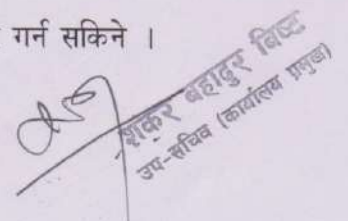 गर्न सकिने ।
शंकर बहादुर बिष्ट
उप-सचिव (कार्यालय प्रमुख)